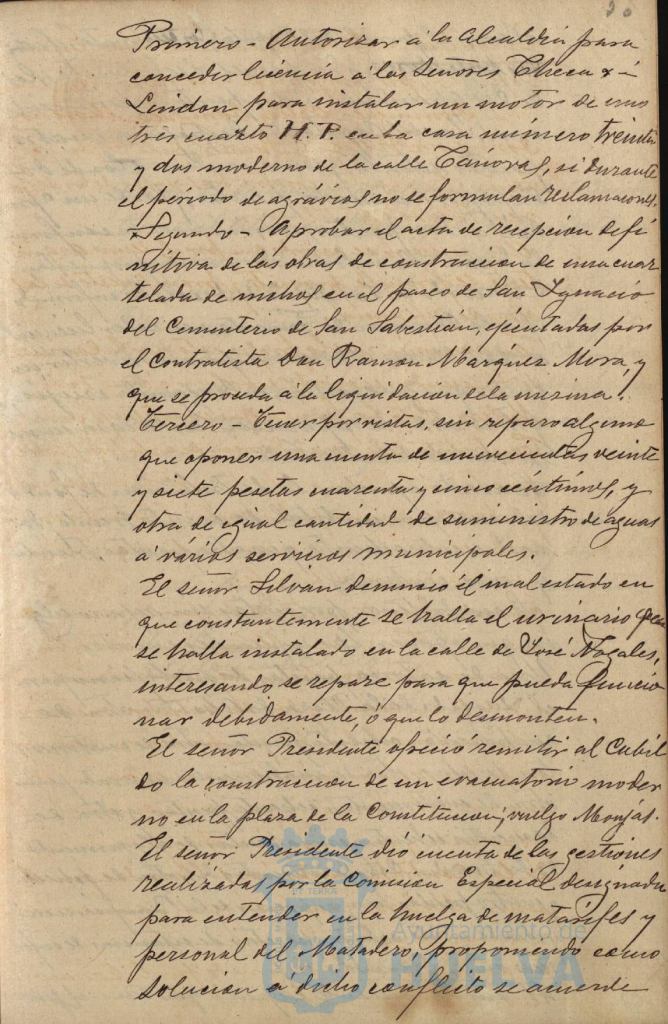 20
Primero - Autorizar á la Alcaldia para
conceder licencia á los Señores Checa
London para instalar un motor de unos
tres cuarto H. P. en la casa número treinta
y dos moderno de la calle si durante
el periodo de agrávios no se formulan reclamaciones.
Segundo - Aprobar el acta de recepcion defi
nitiva de las obras de construccion de una cuar
telada de nichos en el paseo de San Ygnacio
del Cementerio de San Sabestián, ejecutadas por
el contratista Don Ramon Marquez Mora, y
que se proceda á la liquidacion de la misma.
Tercero - Tener por vistas, sin reparo alguno
que oponer una cuenta de novecientas veinte
y siete pesetas cuarenta y cinco céntimos, y
otra de egual cantidad de suministro de aguas
á vários servicios municipales.
El señor Silván denunció el mal estado en
que constantemente se halla el urinario que
se halla instalado en la calle de José Nogales,
interesando se repare para que pueda funcio
nar debidamente, ó que lo desmonten.
El señor Presidente ofreció remitir al Cabil
do la construccion de un evacuatorio moder
no en la plaza de la Constitucion, vulgo Monjas.
El señor Presidente dió cuenta de las gestiones
realizadas por la Comision Especial designada
para entender en la huelga de matarifes y
personal del Matadero, proponiendo como
solucion á dicho conflicto se acuerde
Ayuntamiento de
HUELVA